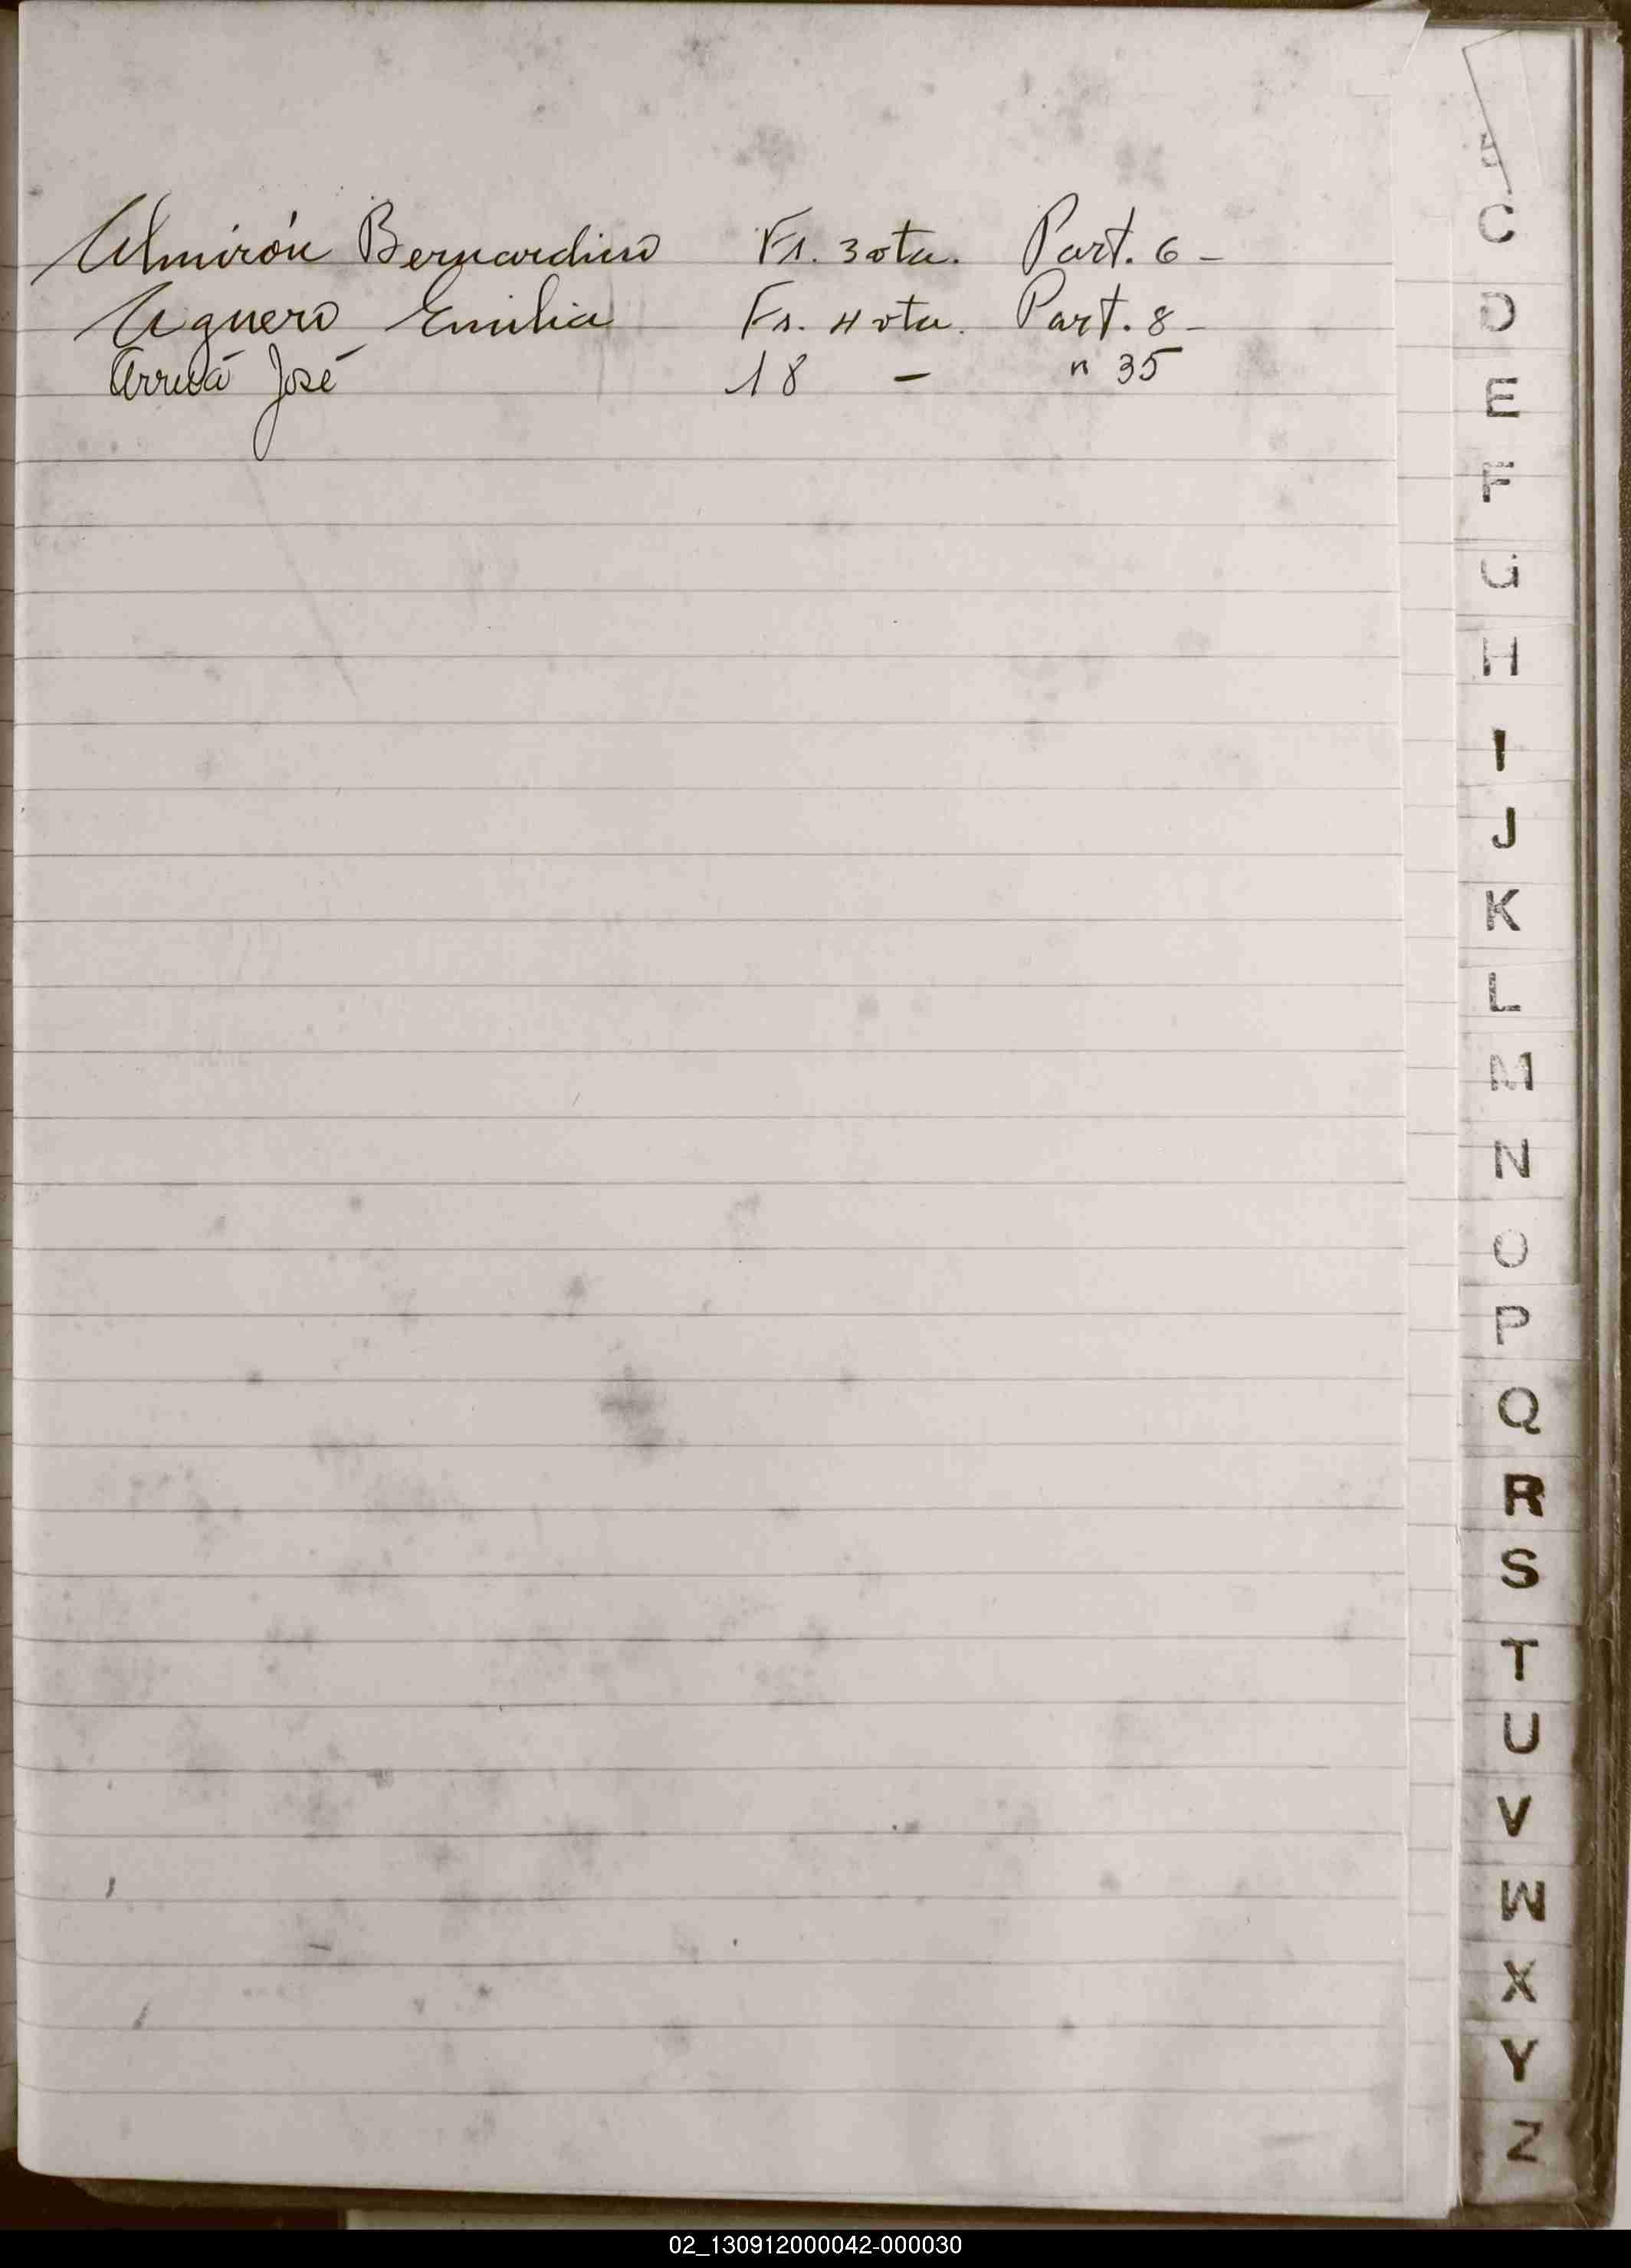 Almirón Bernardino Fs. 3 vta. Part. 6 -
Aguero Emilia Fs. 4 vta. Part. 8 -
José 18 - n 35
C
D
E
F
G
H
I
J
K
L
M
N
O
P
Q
R
S
T
U
V
W
X
Y
Z
02_130912000042-000030